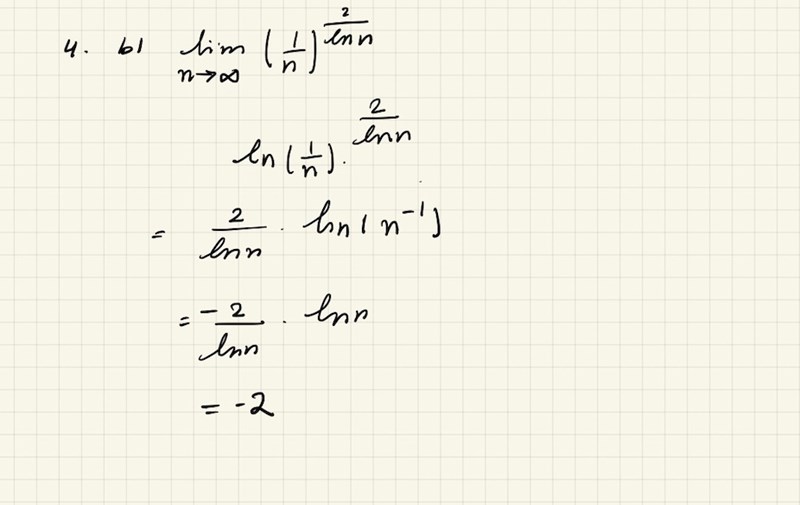 4. b) lim n→∞ (1/n)^(2/ln n)
ln(1/n)·^(2/ln n)
= 2/ln n · ln(n^-1)
= -2/ln n · ln n
= -2